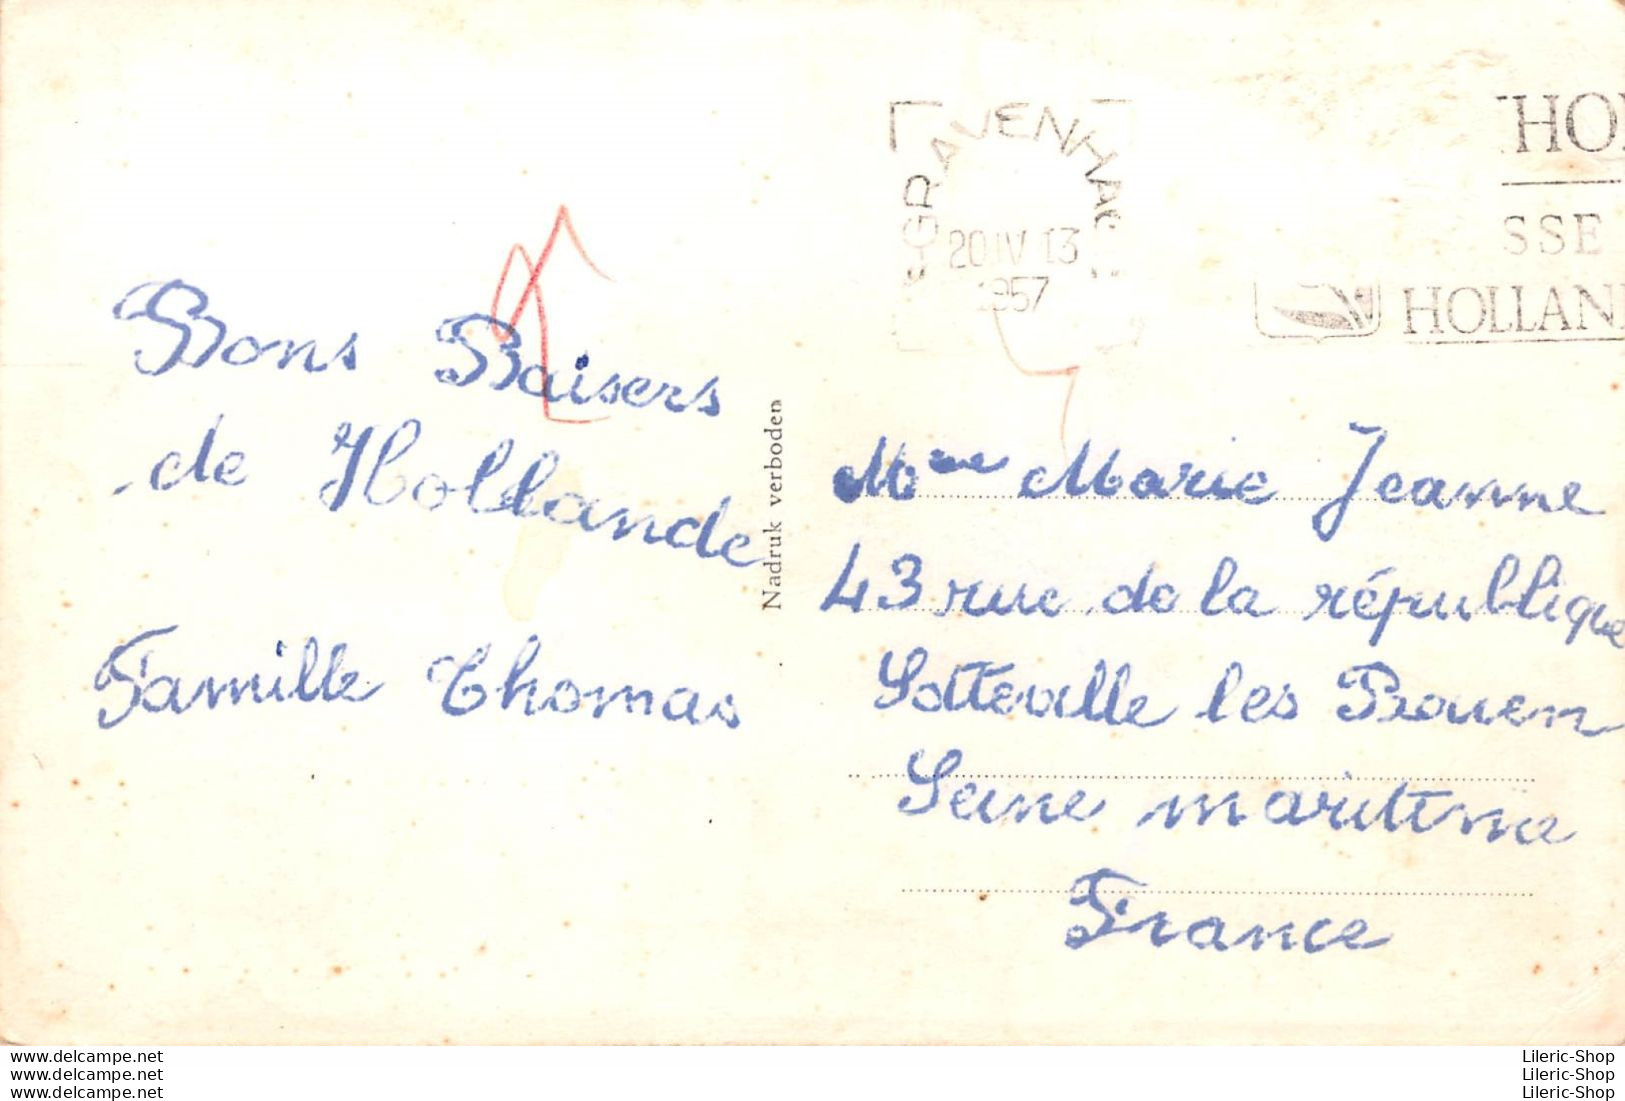 Bons Baisers
de Hollande
Famille Thomas
Nadruk verboden
'S-GRAVENHAG
20 IV 13
1957
HO
SSE
HOLLAN
Mme Marie Jeanne
43 rue de la république
Sotteville les Rouen
Seine maritime
France
www.delcampe.net
www.delcampe.net
www.delcampe.net
Lileric-Shop
Lileric-Shop
Lileric-Shop